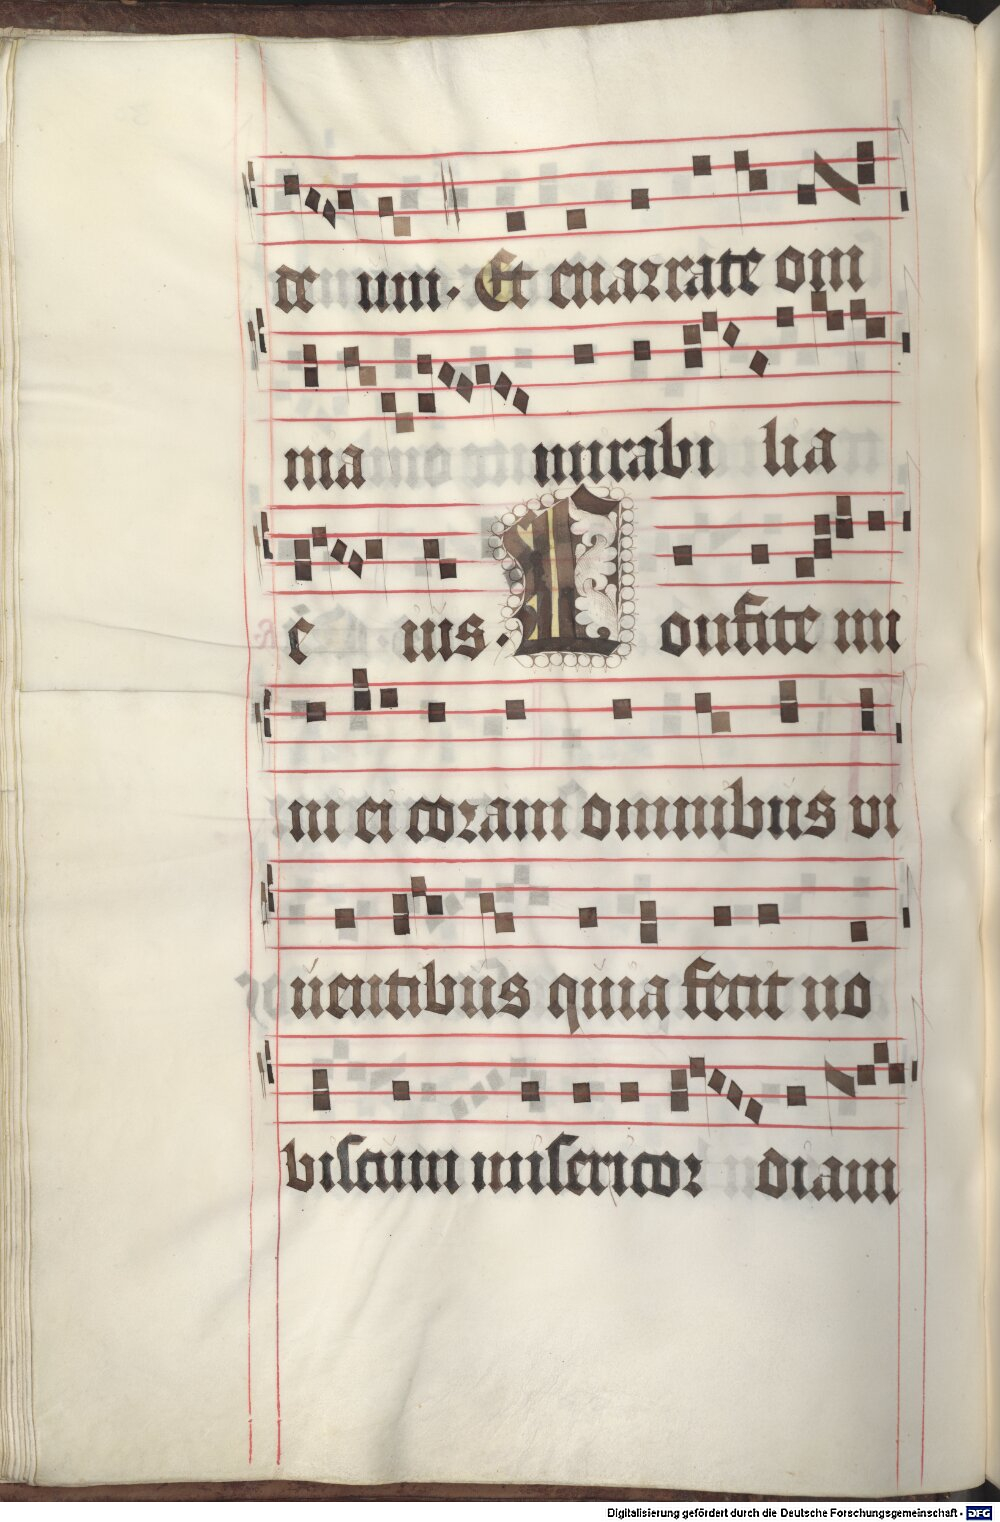 de um. Et enarrate om
nia mirabi lia
e ius. Confite mi
ni ei coram omnibus vi
uentibus quia fecit no
biscum misericor diam
Digitalisierung gefördert durch die Deutsche Forschungsgemeinschaft - DFG